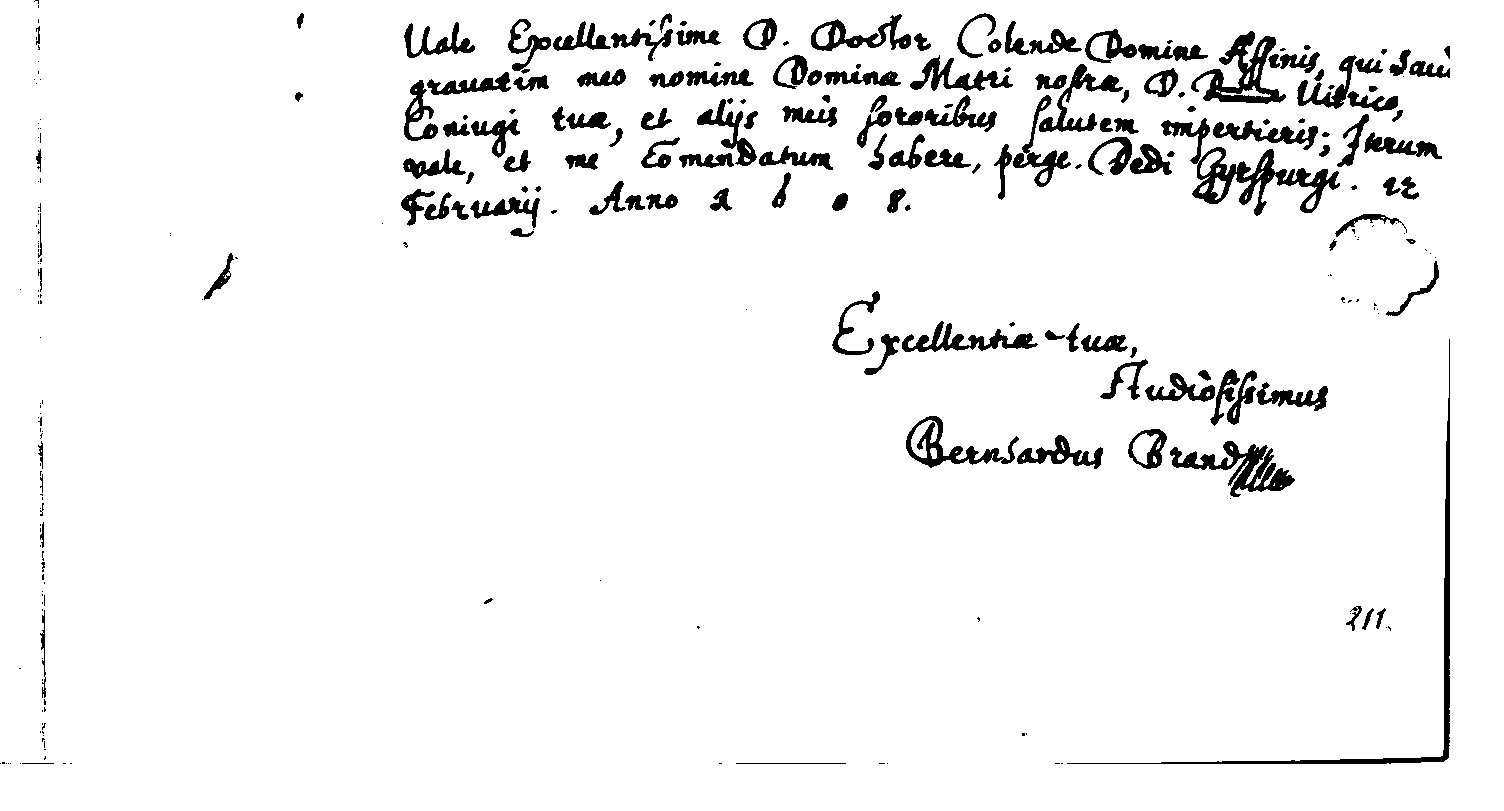 Vale Excellentissime D. Doctor Colende Domine Affinis, qui hau
grauatim meo nomine Dominæ Matri nostræ, D. Vitrico,
Coniugi tuæ, et alijs meis sororibus salutem impertieris; Iterum
vale, et me Comendatum habere, perge. Dedi Gyrspurgi. 12
Februarij. Anno 1 6 0 8.
Excellentiæ tuæ,
Studiosissimus
Bernhardus Brand
211.